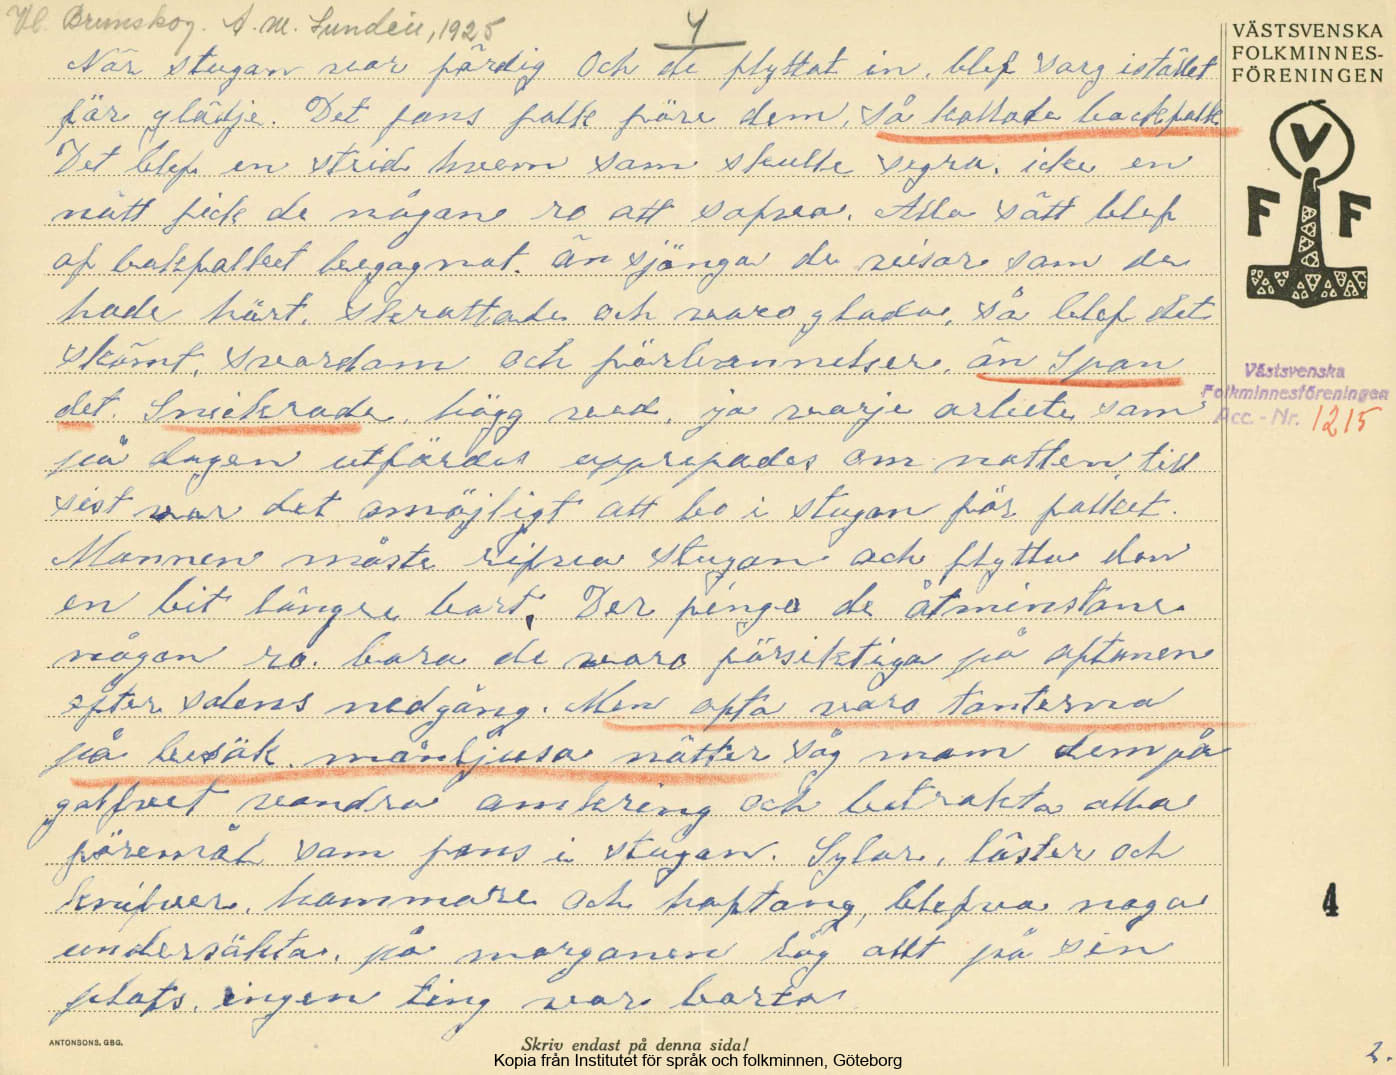 Vl. Brunskog. A. M. Lundén, 1925
4
VÄSTSVENSKA
FOLKMINNES-
FÖRENINGEN
V
F F
När stugan var färdig och de flyttat in, blef sorg istället
för glädje. Det fans folk före dem, så kallade backfolk
Det blef en strid hvem som skulle segra, icke en
nätt fick de någon ro att sofva. Alla sätt blef
af bakfolket begagnat. än sjönga de visor som de
hade hört, skrattade och varo glada, så blef det
skämt, svordom och förbannelser, än Span
det. Snickrade, högg ved, ja varje arbete som
på dagen utfördes upprepades om natten, till
sist var det omöjligt att bo i stugan för folket.
Mannen måste rifva stugan och flytta den
en bit längre bort, Der finge de åtminstone
någon ro. bara de varo försiktiga på aftonen
efter solens nedgång. Men ofta varo tanterna
på besök. månljusa nätter såg mom dem på
golfvet vandra omkring och betrakta alla
föremål som fans i stugan. Sylar, läster och
knifver, hammare och hoftång, blefva noga
undersökta, på morgonen låg allt på sin
plats, ingen ting var borta
Västsvenska
Folkminnesföreningen
Acc. - Nr. 1215
4
ANTONSONS, GBG.
Skriv endast på denna sida!
Kopia från Institutet för språk och folkminnen, Göteborg
2.